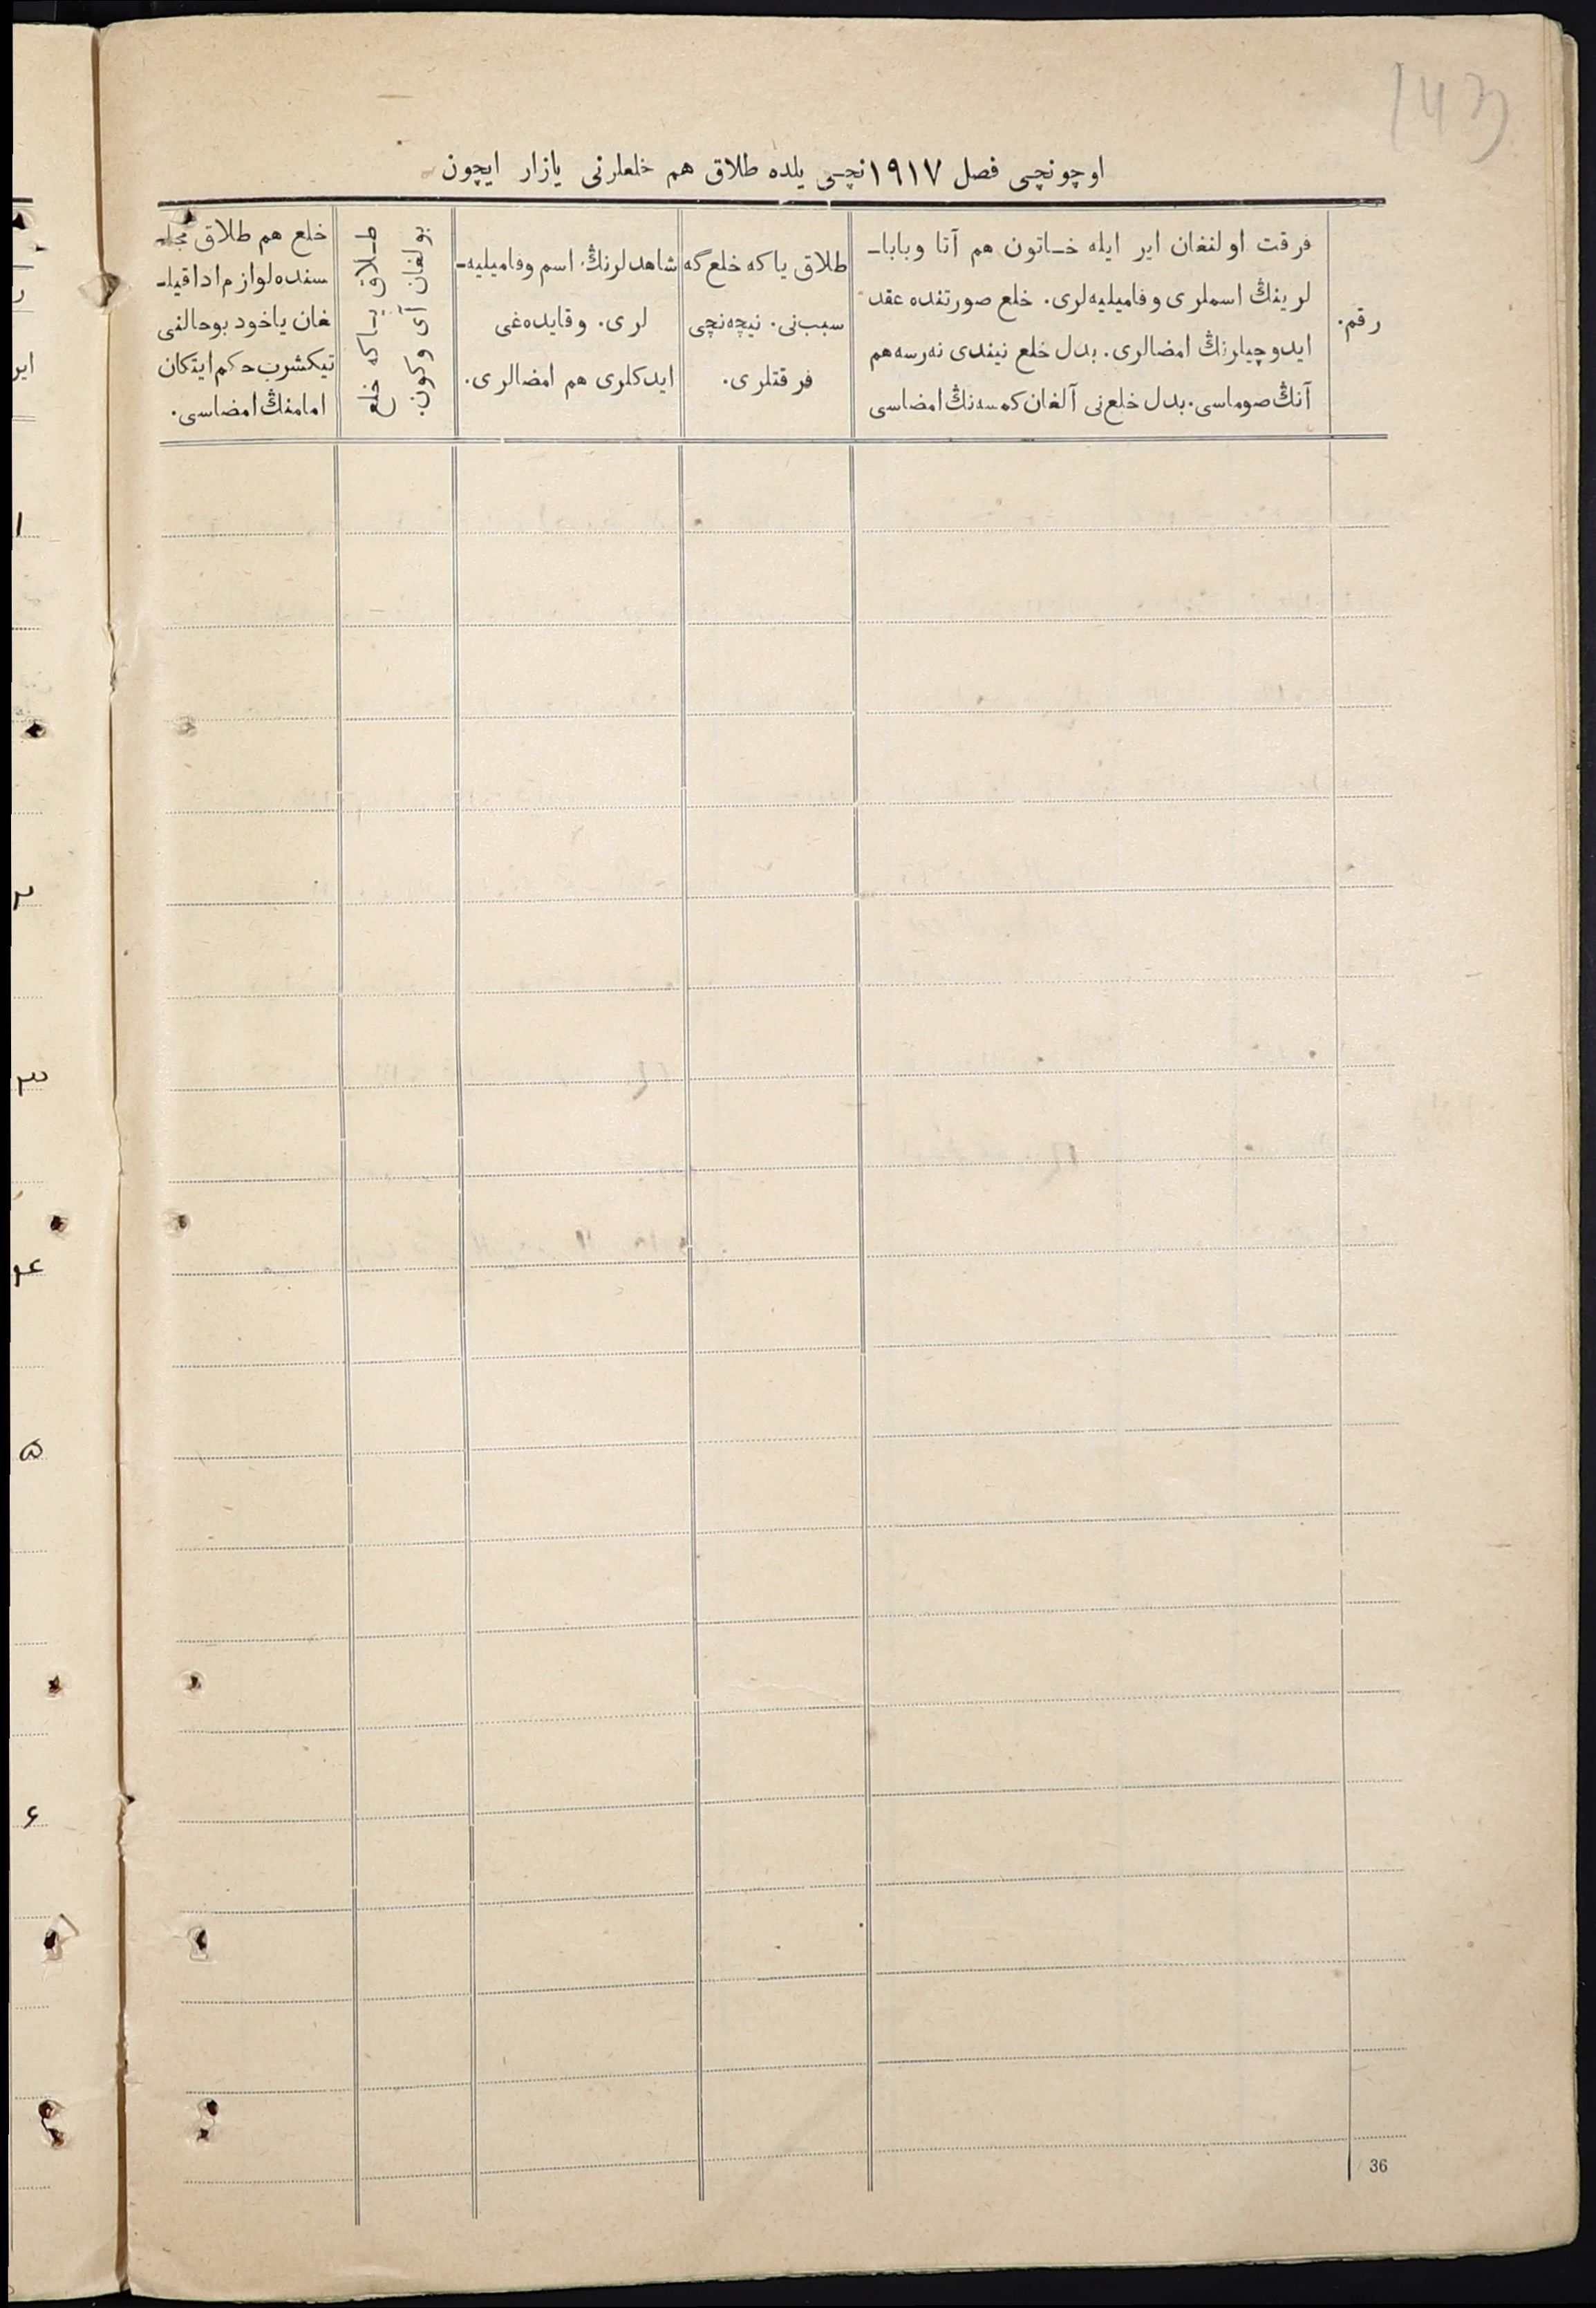 143
اوچونچی فصل ۱۹۱۷نچی یلده طلاق هم خلعلرنی یازار ایچون
رقم.
فرقت اولنغان ایر ایله خـاتون هم آتا وبابا‌ـ
لرینڭ اسملری وفامیلیه‌لری. خلع صورتنده عقد
ایدوچیلرنڭ امضالری. بدل خلع نیندی نه‌رسه هم
آنڭ صوماسی. بدل خلع‌نی آلغان کمسه‌نڭ امضاسی
طلاق یاکه خلع‌گه
سبب‌نی. نیچه‌نچی
فرقتلری.
شاهدلرنڭ اسم وفامیلیه‌ـ
لری. وقایده‌غی
ایدکلری هم امضالری.
طـلاق یـاکه خلع
بولغان آی وکون.
خلع هم طلاق مجلـ
سنده لوازم ادا قیلـ
غان یاخود بوحالنی
تیکشرب حکم ایتکان
امامنڭ امضاسی.
ر
ایر
۱
۲
۳
۴
۵
۶
36